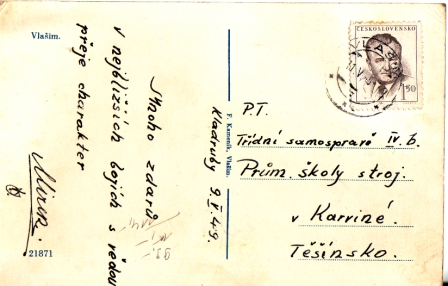 Vlašim.
Mnoho zdaru
v nejbližších bojích s vědou
přeje charakter
Mirek.
21871
F. Kameník, Vlašim.
Kladruby 9.V.49.
ČESKOSLOVENSKO
1.50
P.T.
Třídní samosprávě IV.b.
Prům. školy stroj.
v Karviné.
Těšínsko.